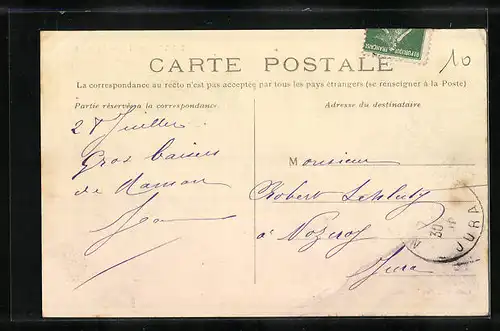 RÉPUBLIQUE FRANÇAISE
10
CARTE POSTALE
La correspondance au recto n'est pas acceptée par tous les pays étrangers (se renseigner à la Poste)
Partie réservée à la correspondance.
Adresse du destinataire
28 Juillet
Gros baisers
de Maman
Jean
Monsieur
Robert
à Nozeroy
Jura
30
JURA